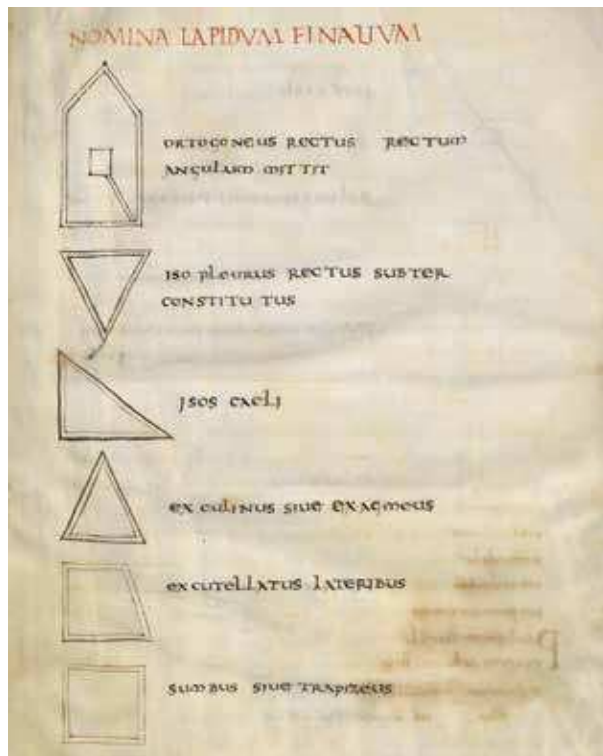 NOMINA LAPIDVM FINALIVM
ORTOGONEUS RECTUS RECTUM
ANGULARD MITTIT
ISO PLEURUS RECTUS SUBTER
CONSTITU TUS
ISOS EXELI
EX CULINUS SIUE EXAGMEUS
EXCUTELLATUS LATERIBUS
SUMBUS SIUE TRAPIZEUS